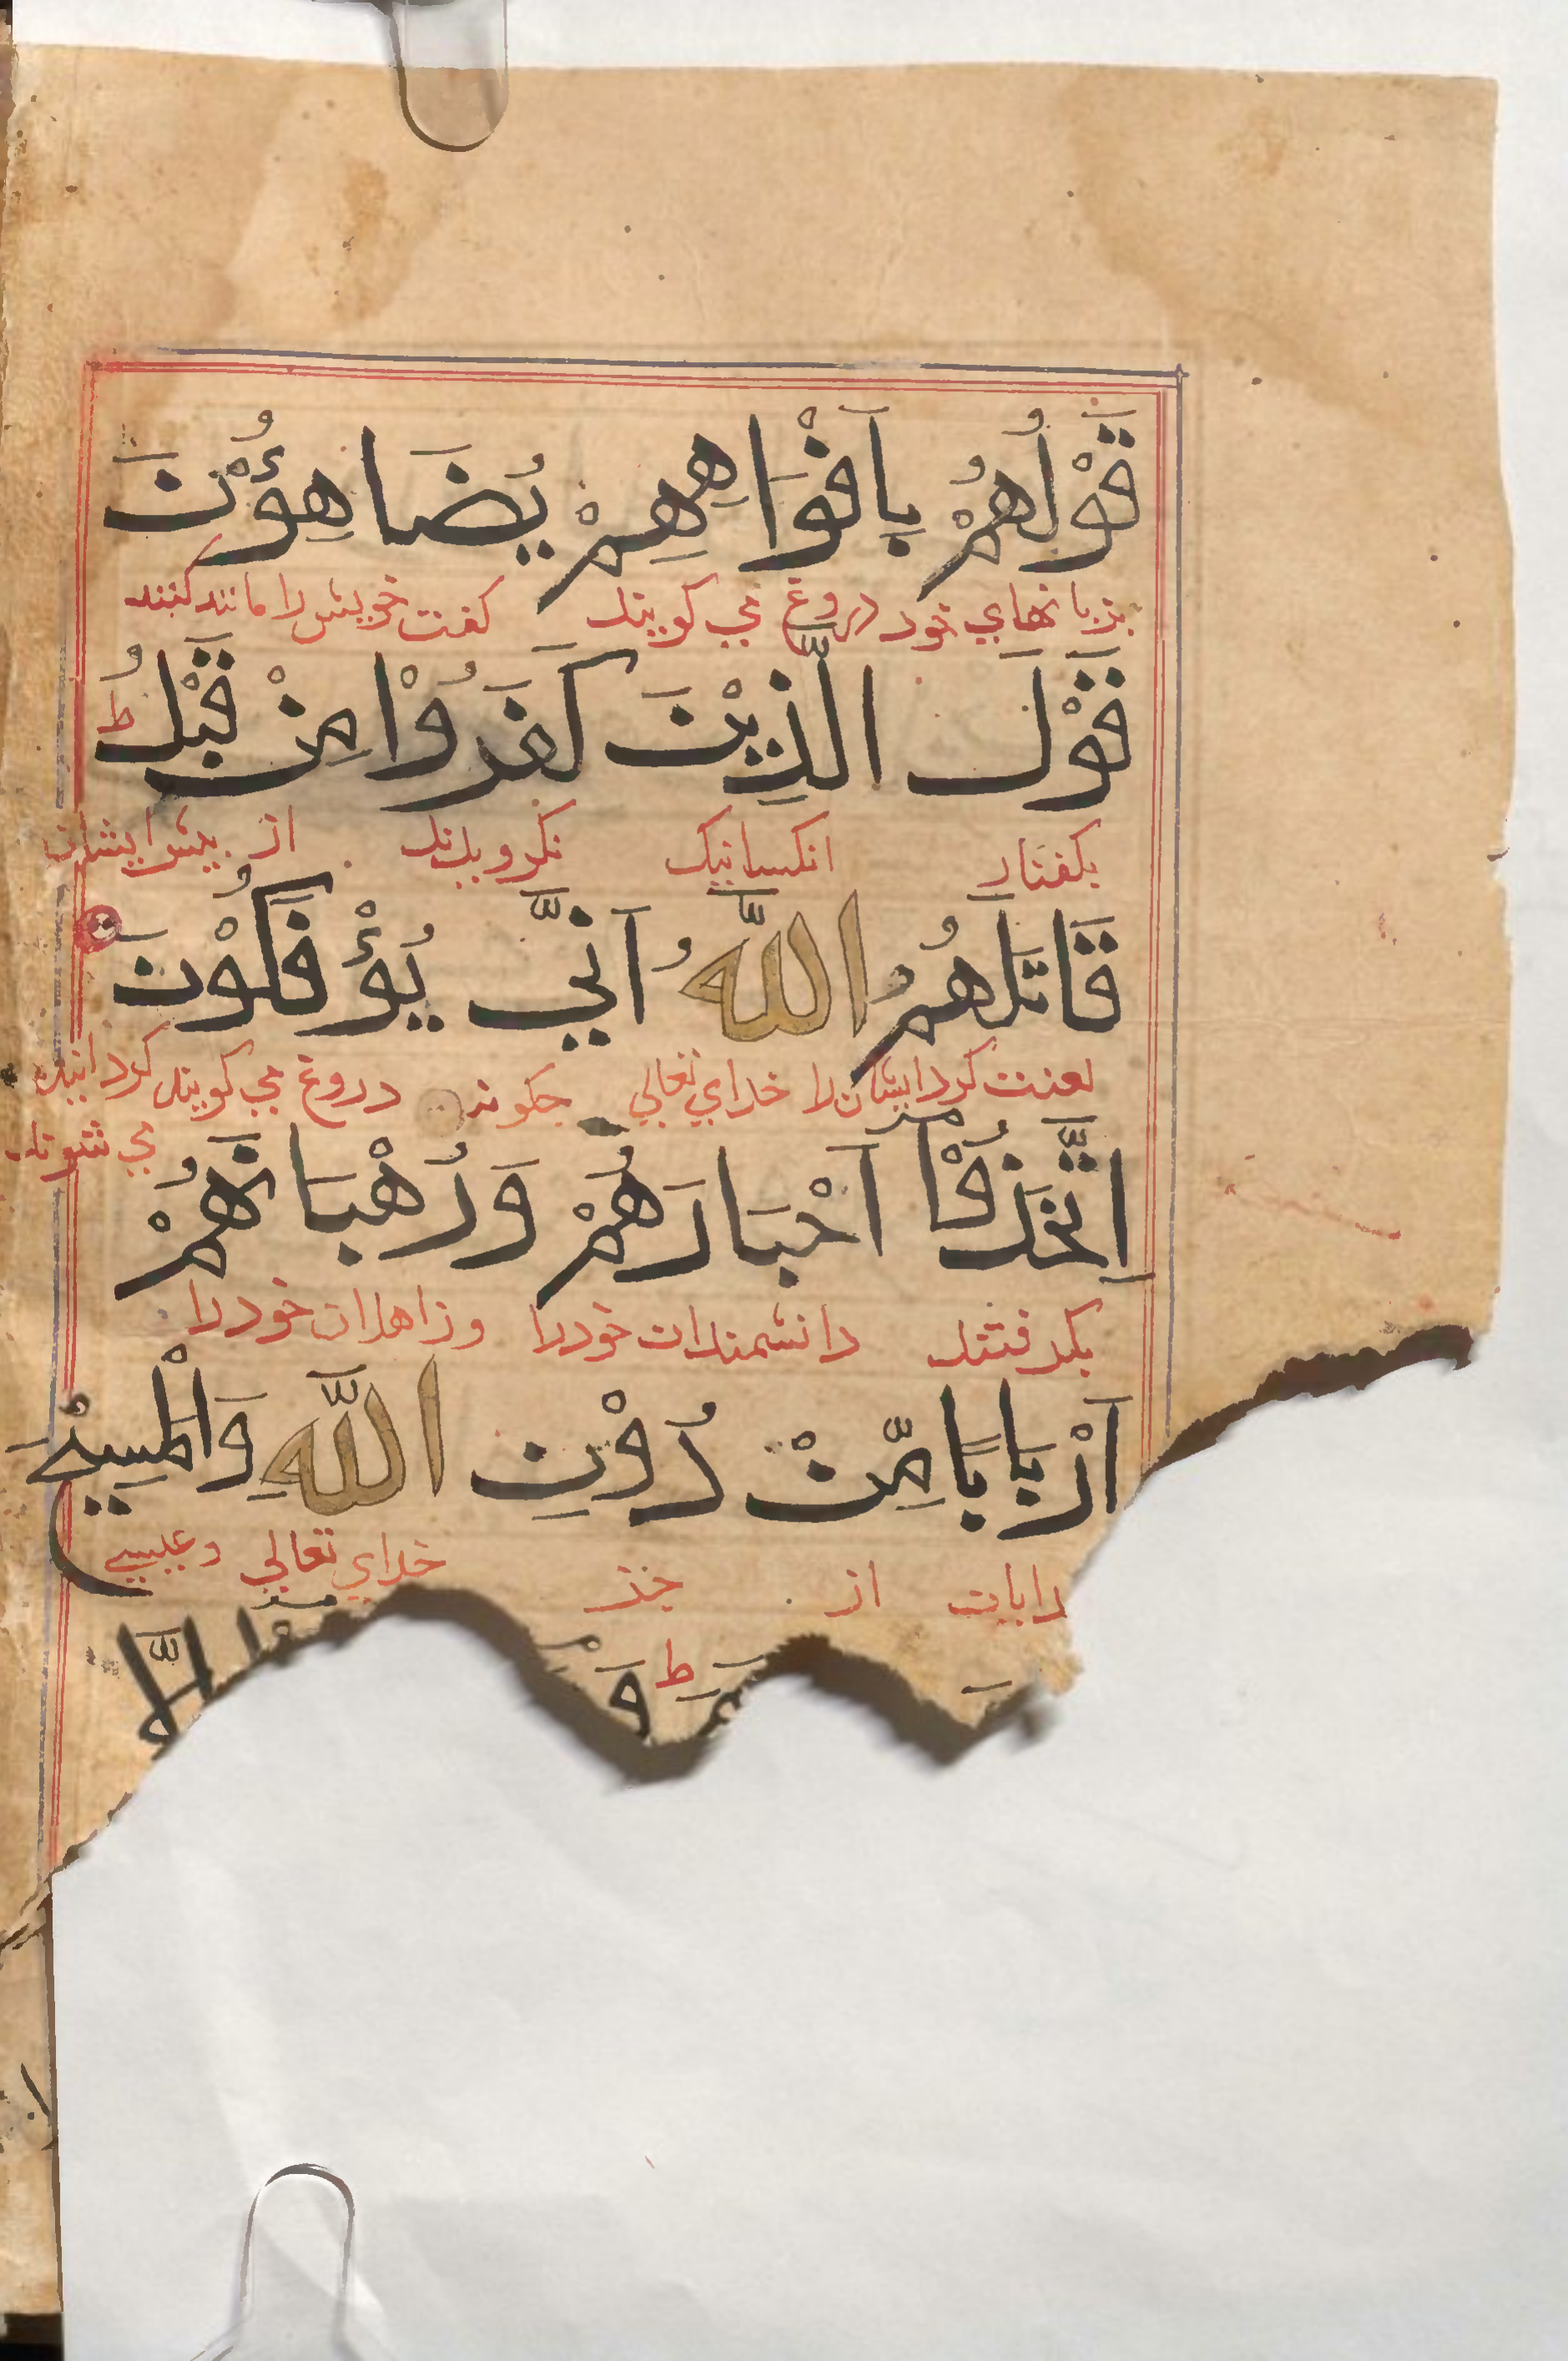 قَوْلُهُمْ بِاَفْوَاهِهِمْ يُضَاهِؤُنَ
بزبانهاي خود دروغ مي كويند كفت خويش را مانند كنند
قَوْلَ الَّذِيْنَ كَفَرُوْا مِنْ قَبْلُ ط
بكفتار انكسانيك نكرويدند از پيش ايشان
قَاتَلَهُمُ اللّٰهُ اَنّٰي يُؤْفَكُوْنَ
لعنت كرد ايشان را خداي تعالي جكونه دروغ مي كويند كردانيده
مي شوند
اِتَّخَذُوْٓا اَحْبَارَهُمْ وَرُهْبَانَهُمْ
بكرفتند دانشمندان خود را و زاهدان خود را
اَرْبَابًا مِّنْ دُوْنِ اللّٰهِ وَالْمَسِيْحَ
از جز خداي تعالي و عيسي
ط وَ